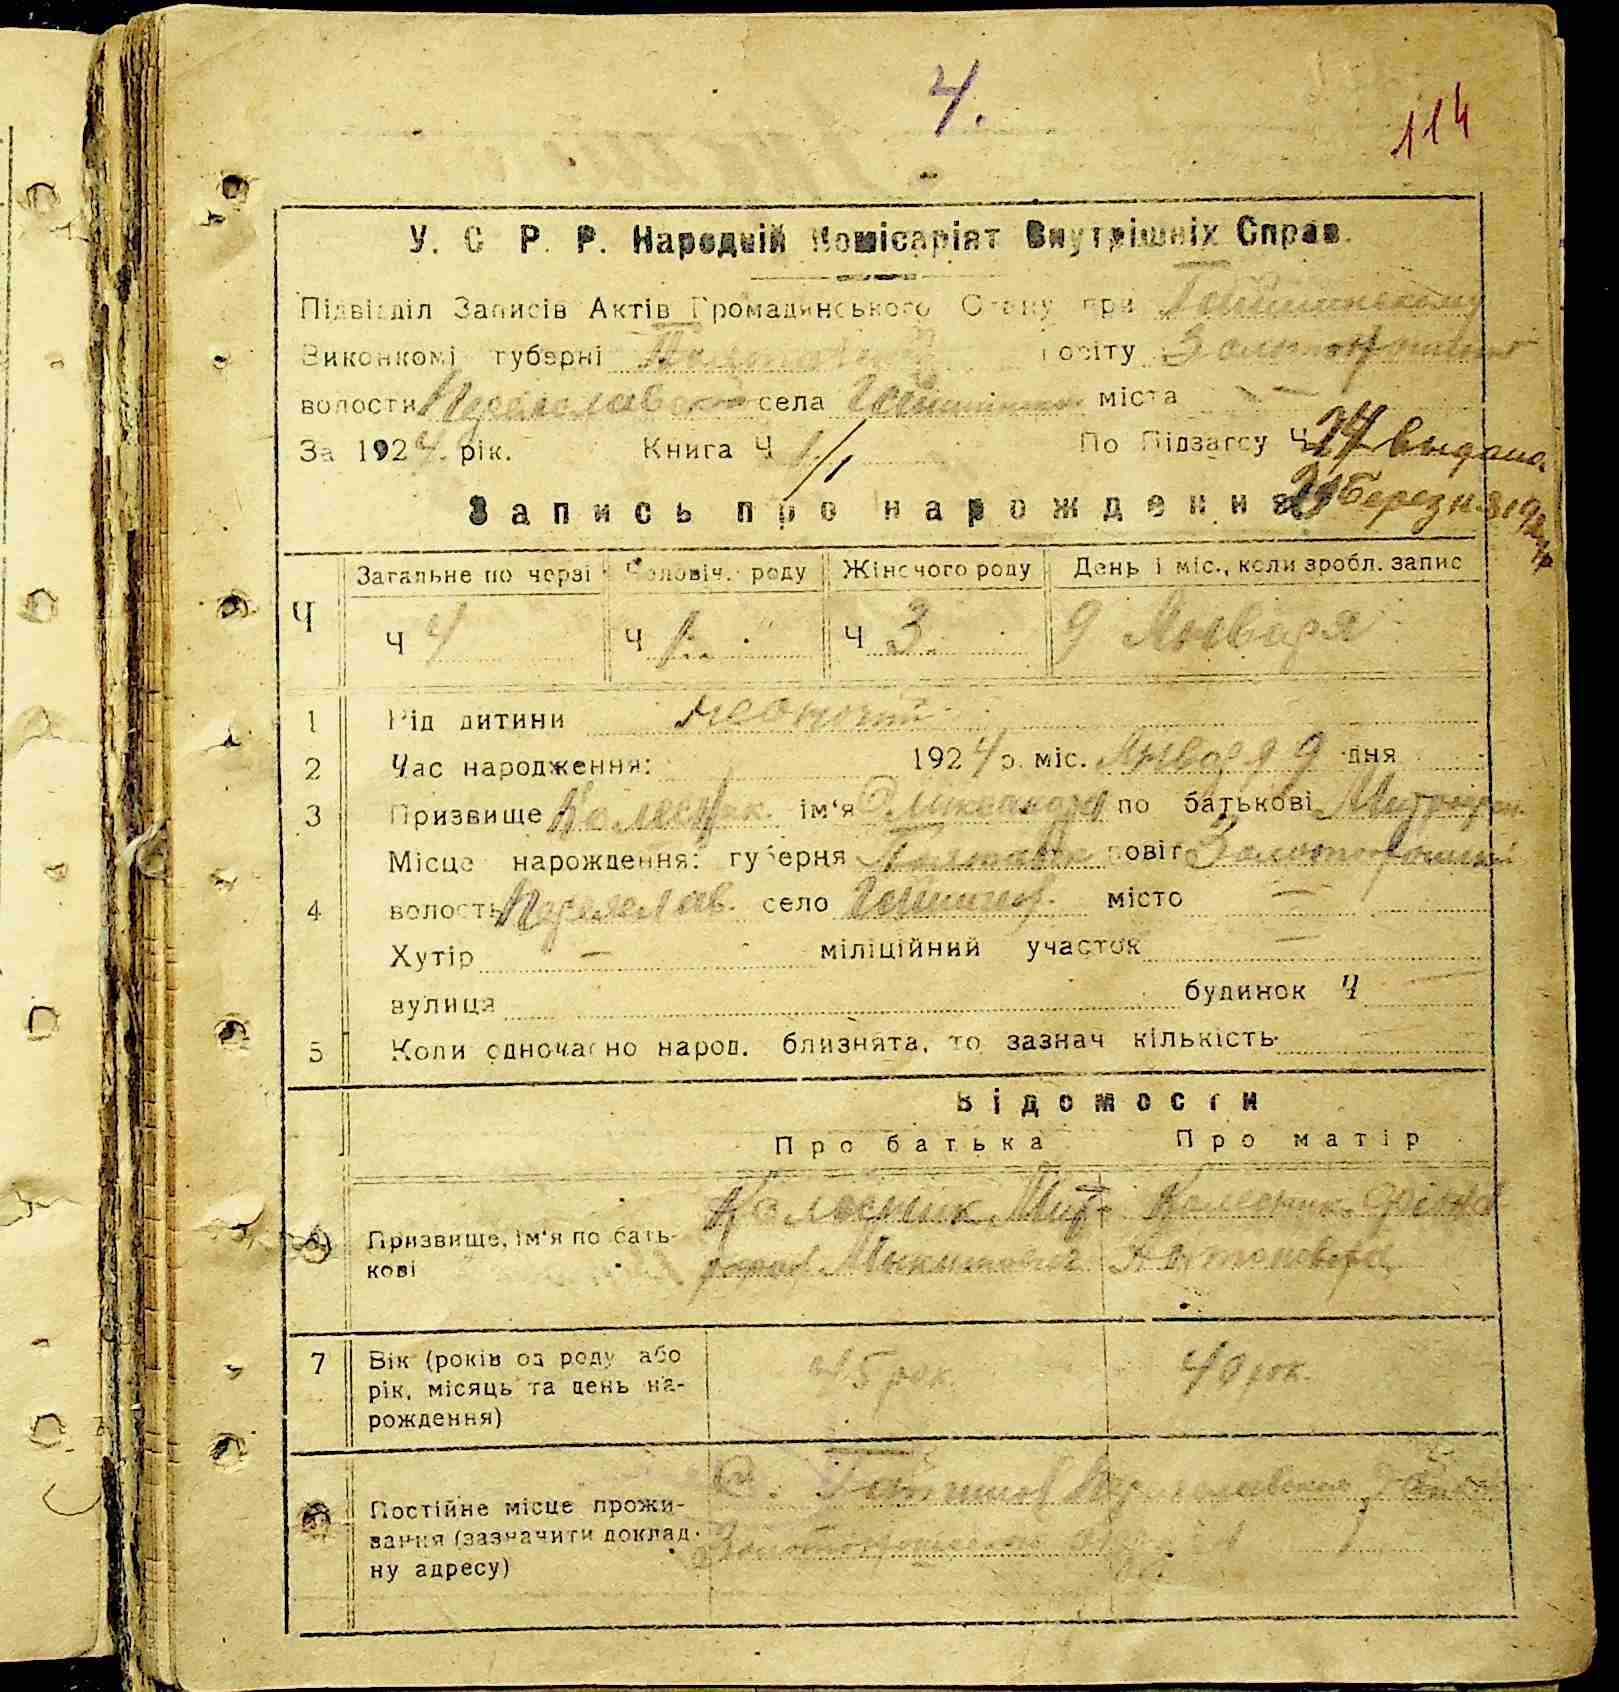 4.
114
У. С Р. Р. Народній Комісаріят Внутрішніх Справ.
Підвідділ Записів Актів Громадянського Стану при
Виконкомі губерні Полтавської повіту Золотоніського
волости Переяславської села міста —
За 1924 рік. Книга Ч 1/1 По Підзагсу Ч 24 выдано
Березня 1924 р
Запись про народження
Загальне по черзі Чоловіч. роду Жіночого роду День і міс., коли зробл. запис
Ч Ч 4 Ч 1. " Ч 3. 9 Января
1 Рід дитини жіночий
2 Час народження: 1924 р. міс. Января 9 дня
3 Призвище Колесник ім'я Олександра по батькові Митроф.
Місце нарождення: губерня Полтавск повіт
4 волость Переяслав. село місто —
Хутір — міліційний участок —
вулиця будинок Ч —
5 Коли одночасно народ. близнята, то зазнач кількість
Відомости
Про батька Про матір
Колесник Мит- Колесник
6 Призвище, ім'я по бать- рофан Микитович
кові
7 Вік (років од роду або 45 рок. 40 рок.
рік, місяць та день на-
рождення)
С. Переяславської
8 Постійне місце прожи-
вання (зазначити доклад-
ну адресу)